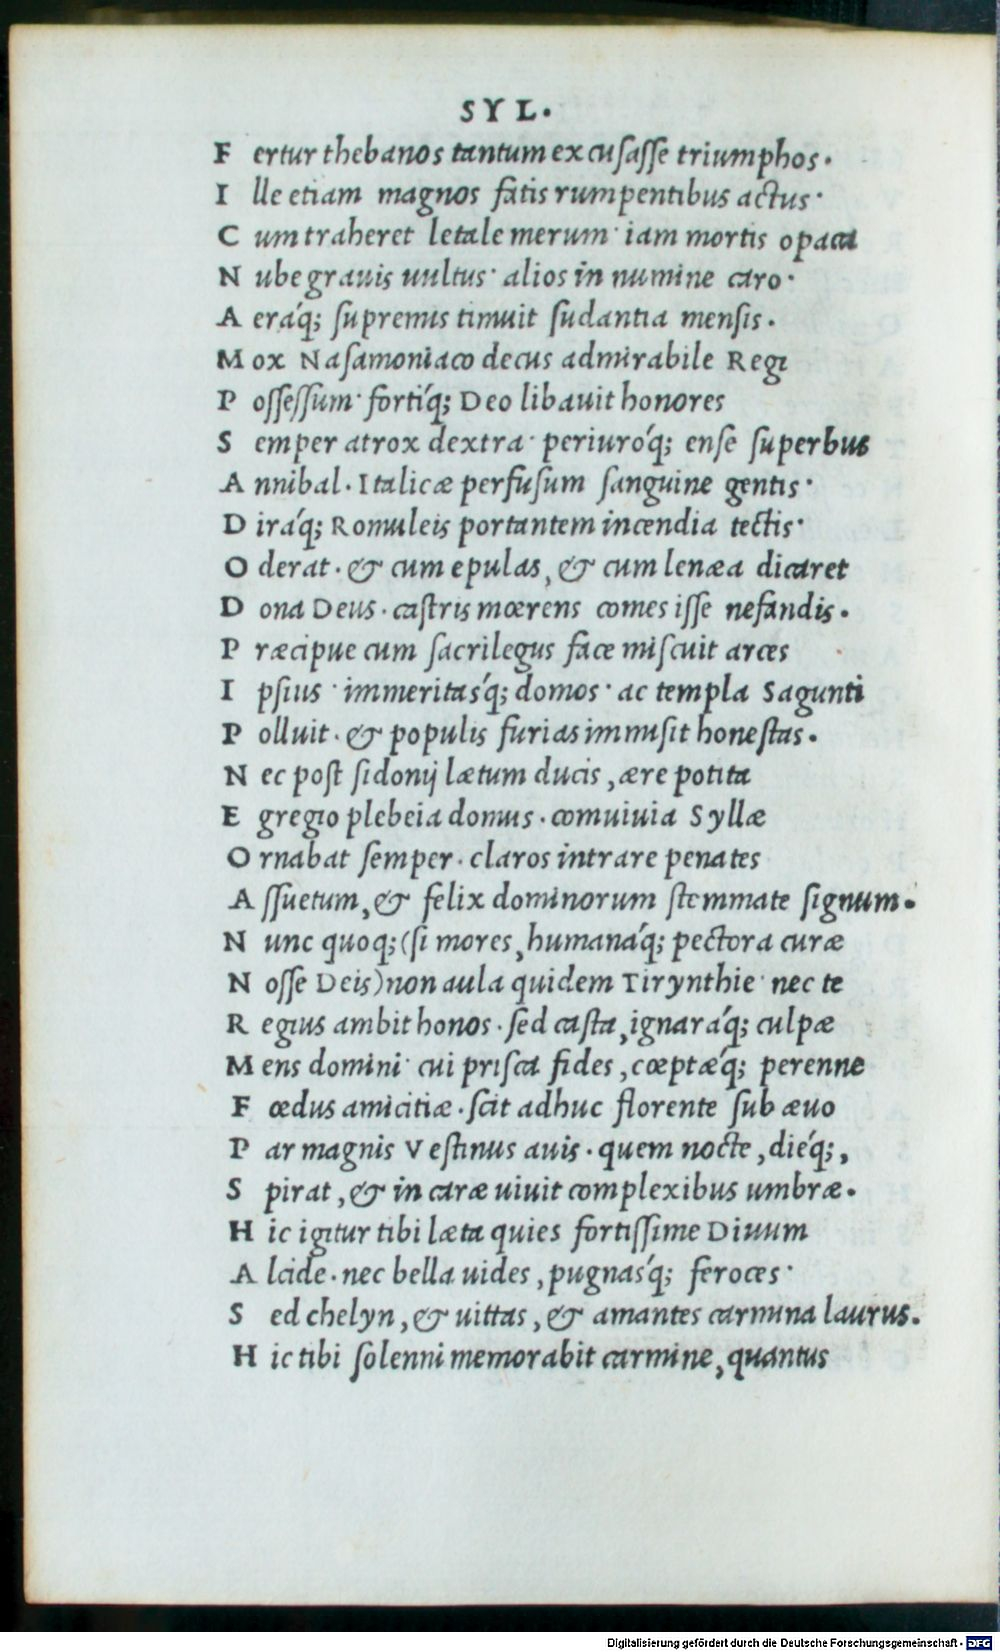 SYL.
F ertur thebanos tantum excusasse triumphos.
I lle etiam magnos fatis rumpentibus actus·
C um traheret letale merum· iam mortis opaca
N ube grauis uultus· alios in numine caro·
A eráq; supremis timuit sudantia mensis.
M ox Nasamoniaco decus admirabile Regi
P ossessum· fortíq; Deo libauit honores
S emper atrox dextra· periuróq; ense superbus
A nnibal. Italicæ perfusum sanguine gentis·
D iráq; Romuleis portantem incendia tectis·
O derat. & cum epulas, & cum lenæa dicaret
D ona Deus. castris mœrens comes isse nefandis.
P ræcipue cum sacrilegus face miscuit arces
I psius· immeritasq́; domos· ac templa Sagunti
P olluit. & populis furias immisit honestas.
N ec post sidonij lætum ducis, ære potita
E gregio plebeia domus. conuiuia Syllæ
O rnabat semper. claros intrare penates
A ssuetum, & felix dominorum stemmate signum.
N unc quoq; (si mores, humanáq; pectora curæ
N osse Deis) non aula quidem Tirynthie· nec te
R egius ambit honos. sed casta, ignaráq; culpæ
M ens domini· cui prisca fides, cœptæq́; perenne
F œdus amicitiæ. scit adhuc florente sub æuo
P ar magnis Vestinus auis. quem nocte, diéq;,
S pirat, & in caræ uiuit complexibus umbræ.
H ic igitur tibi læta quies fortissime Diuum
A lcide. nec bella uides, pugnasq́; feroces·
S ed chelyn, & uittas, & amantes carmina laurus.
H ic tibi solenni memorabit carmine, quantus
Digitalisierung gefördert durch die Deutsche Forschungsgemeinschaft - DFG